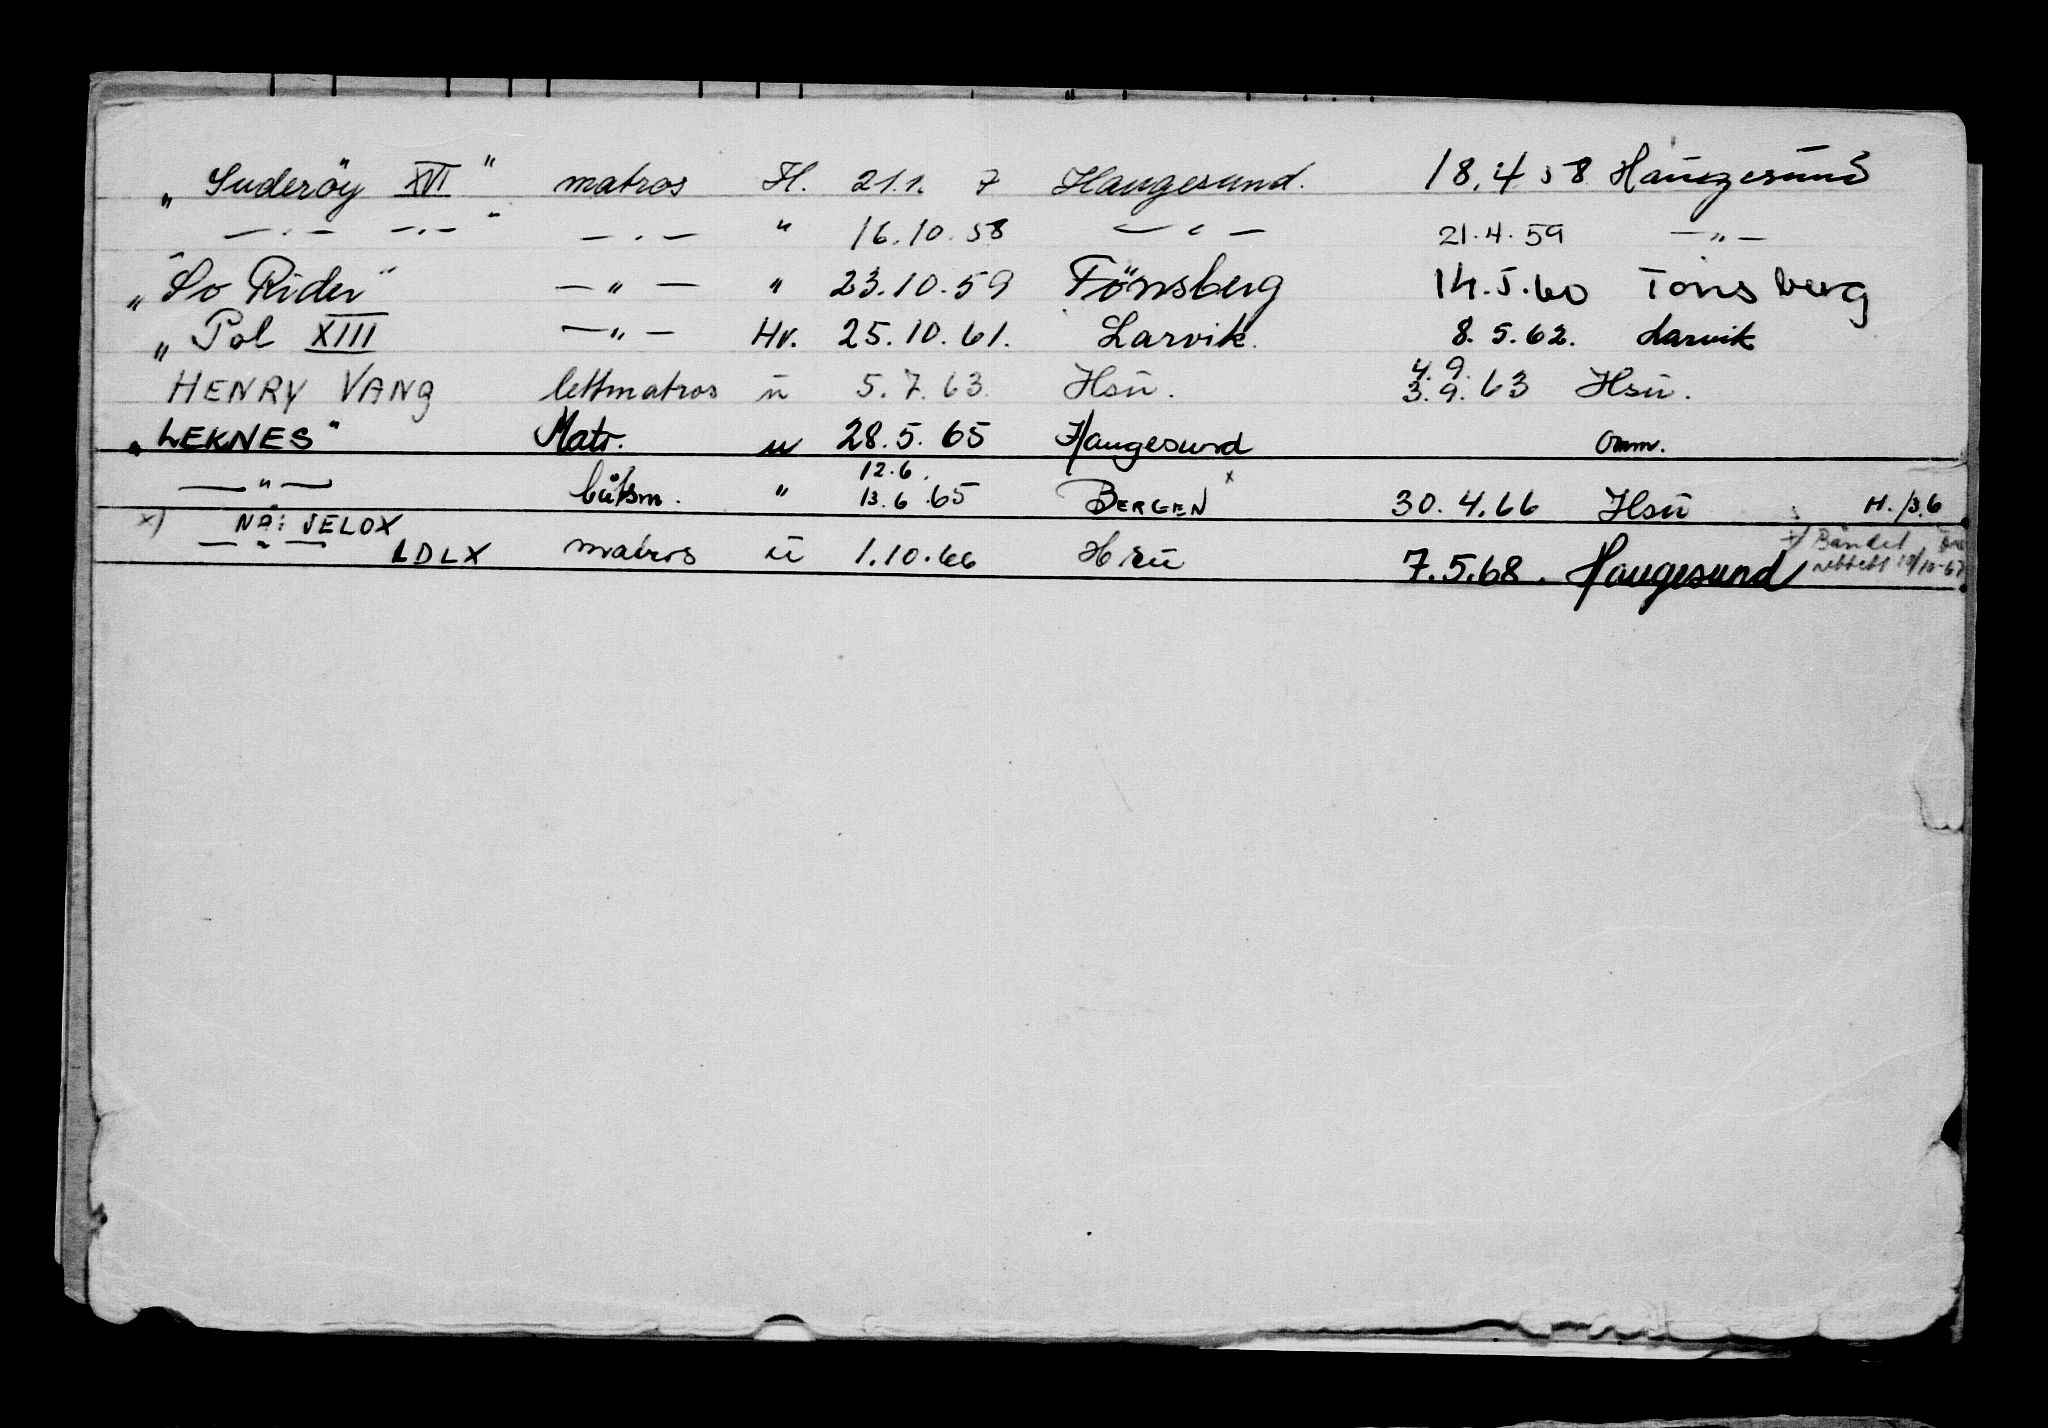 „Suderöy XVI" matros H. 21.1. 7 Haugesund. 18.4 58 Haugesund
" —.— —.— " —.— " 16.10.58 — " — 21.4.59 —"—
„So Rider" —"— " 23.10.59 Tönsberg 14.5.60 Tönsberg
„Pol XIII —"— Hv. 25.10.61. Larvik. 8.5.62. Larvik
4.9.
HENRY VANG lettmatros u 5.7.63. Hsu. 3.9.63 Hsu.
„LEKNES" Matr. u 28.5.65 Haugesund Omm.
12.6.
—"— båtsm. " 13.6.65 BERGEN x 30.4.66 Hsu H./3.6
x) NÅ: VELOX
—"— LDLX matros u 1.10.66 Hsu 7.5.68. Haugesund x) Båndet
rettett 10-67